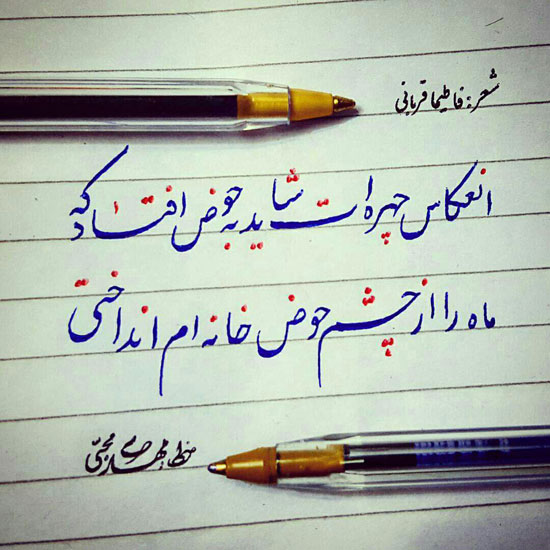 شعر: فاطیما قربانی
انعکاس چهره ات شاید به حوض افتاد که
ماه را از چشم حوض خانه ام انداختی
خط: مهدی محبی